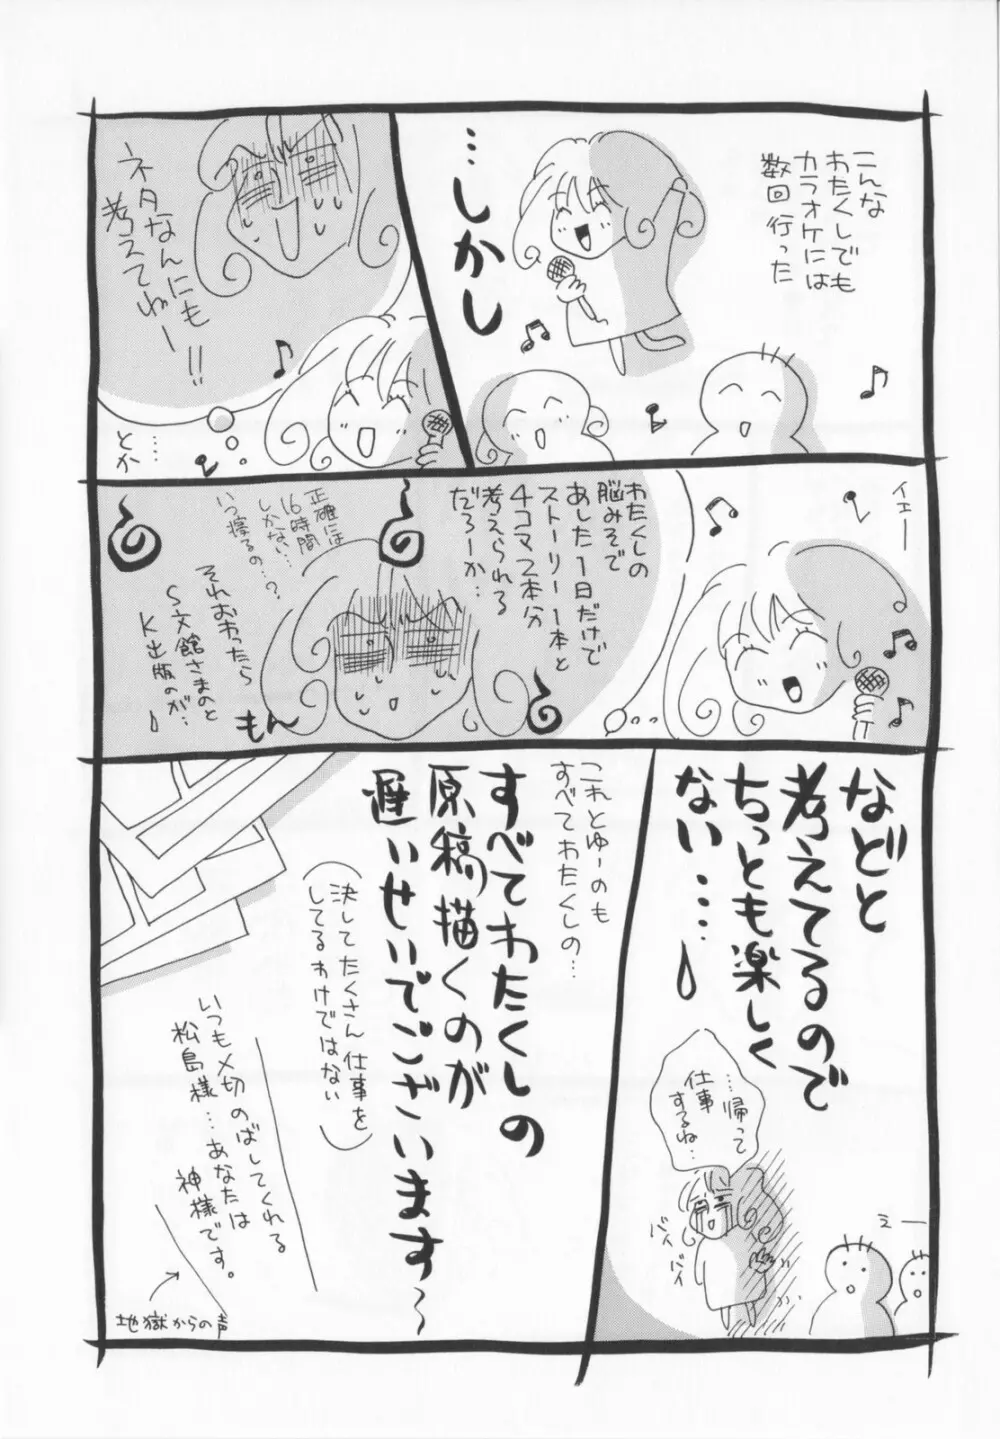 こんな
わたくしでも
カラオケには
数回行った
…しかし
ネタなんにも
考えてねー!!
…
とか
イェー
わたくしの
脳みそで
あした1日だけで
ストーリー1本と
4コマ2本分
考えられる
だろーか…
正確には
16時間
しかない…
いつ寝るの…?
それおわったら
S文館さまのと
K出版のが…
もん
などと
考えてるので
ちっとも楽しく
ない…
…帰って
仕事
するね…
バイ
バイ
えー
これとゆーのも
すべてわたくしの…
すべてわたくしの
原稿描くのが
遅いせいでございます〜
(決してたくさん仕事を
してるわけではない)
いつも〆切のばしてくれる
松島様…あなたは
神様です。
地獄からの声